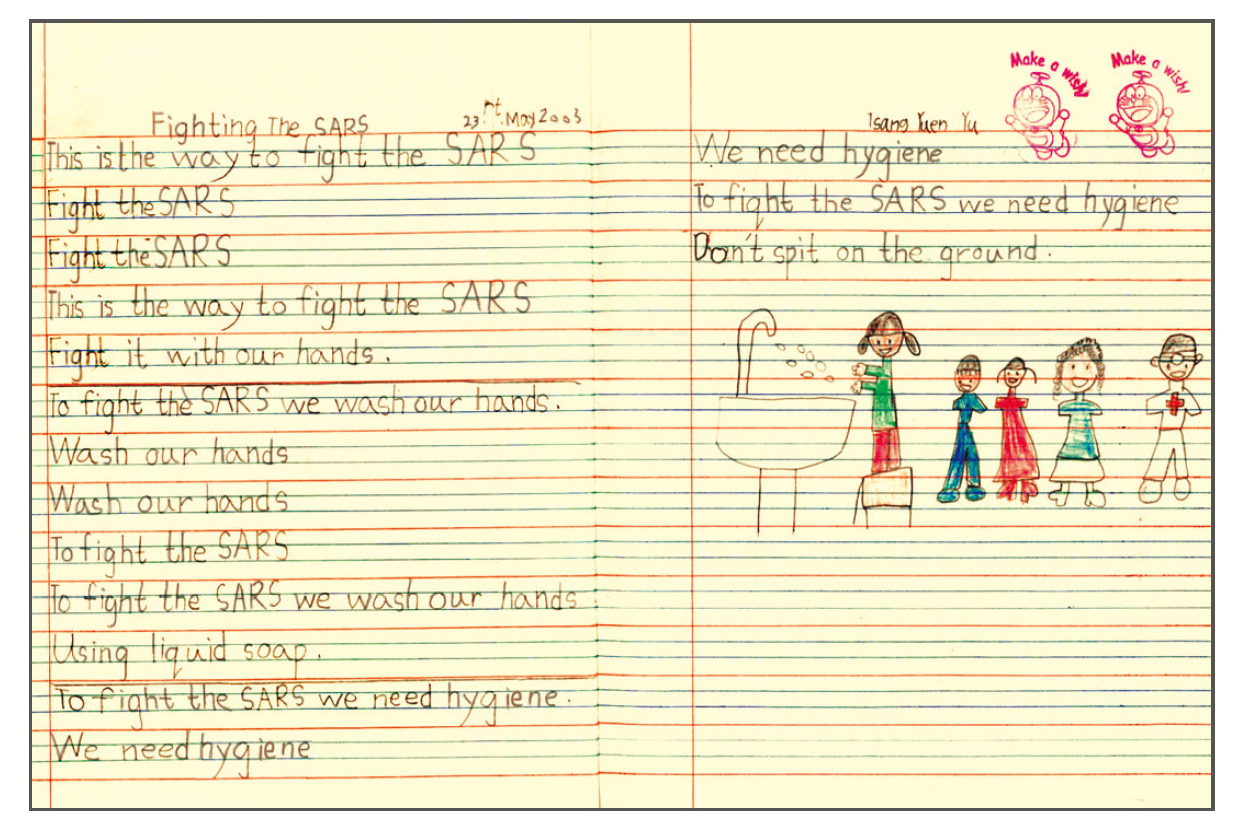 Fighting The SARS
23.rd.May 2003
This is the way to fight the SARS
Fight the SARS
Fight the SARS
This is the way to fight the SARS
Fight it with our hands.
To fight the SARS we wash our hands.
Wash our hands
Wash our hands
To fight the SARS
To fight the SARS we wash our hands
Using liquid soap.
To fight the SARS we need hygiene.
We need hygiene
Tsang Yuen Yu
Make a wish!
Make a wish!
We need hygiene
To fight the SARS we need hygiene
Don't spit on the ground.